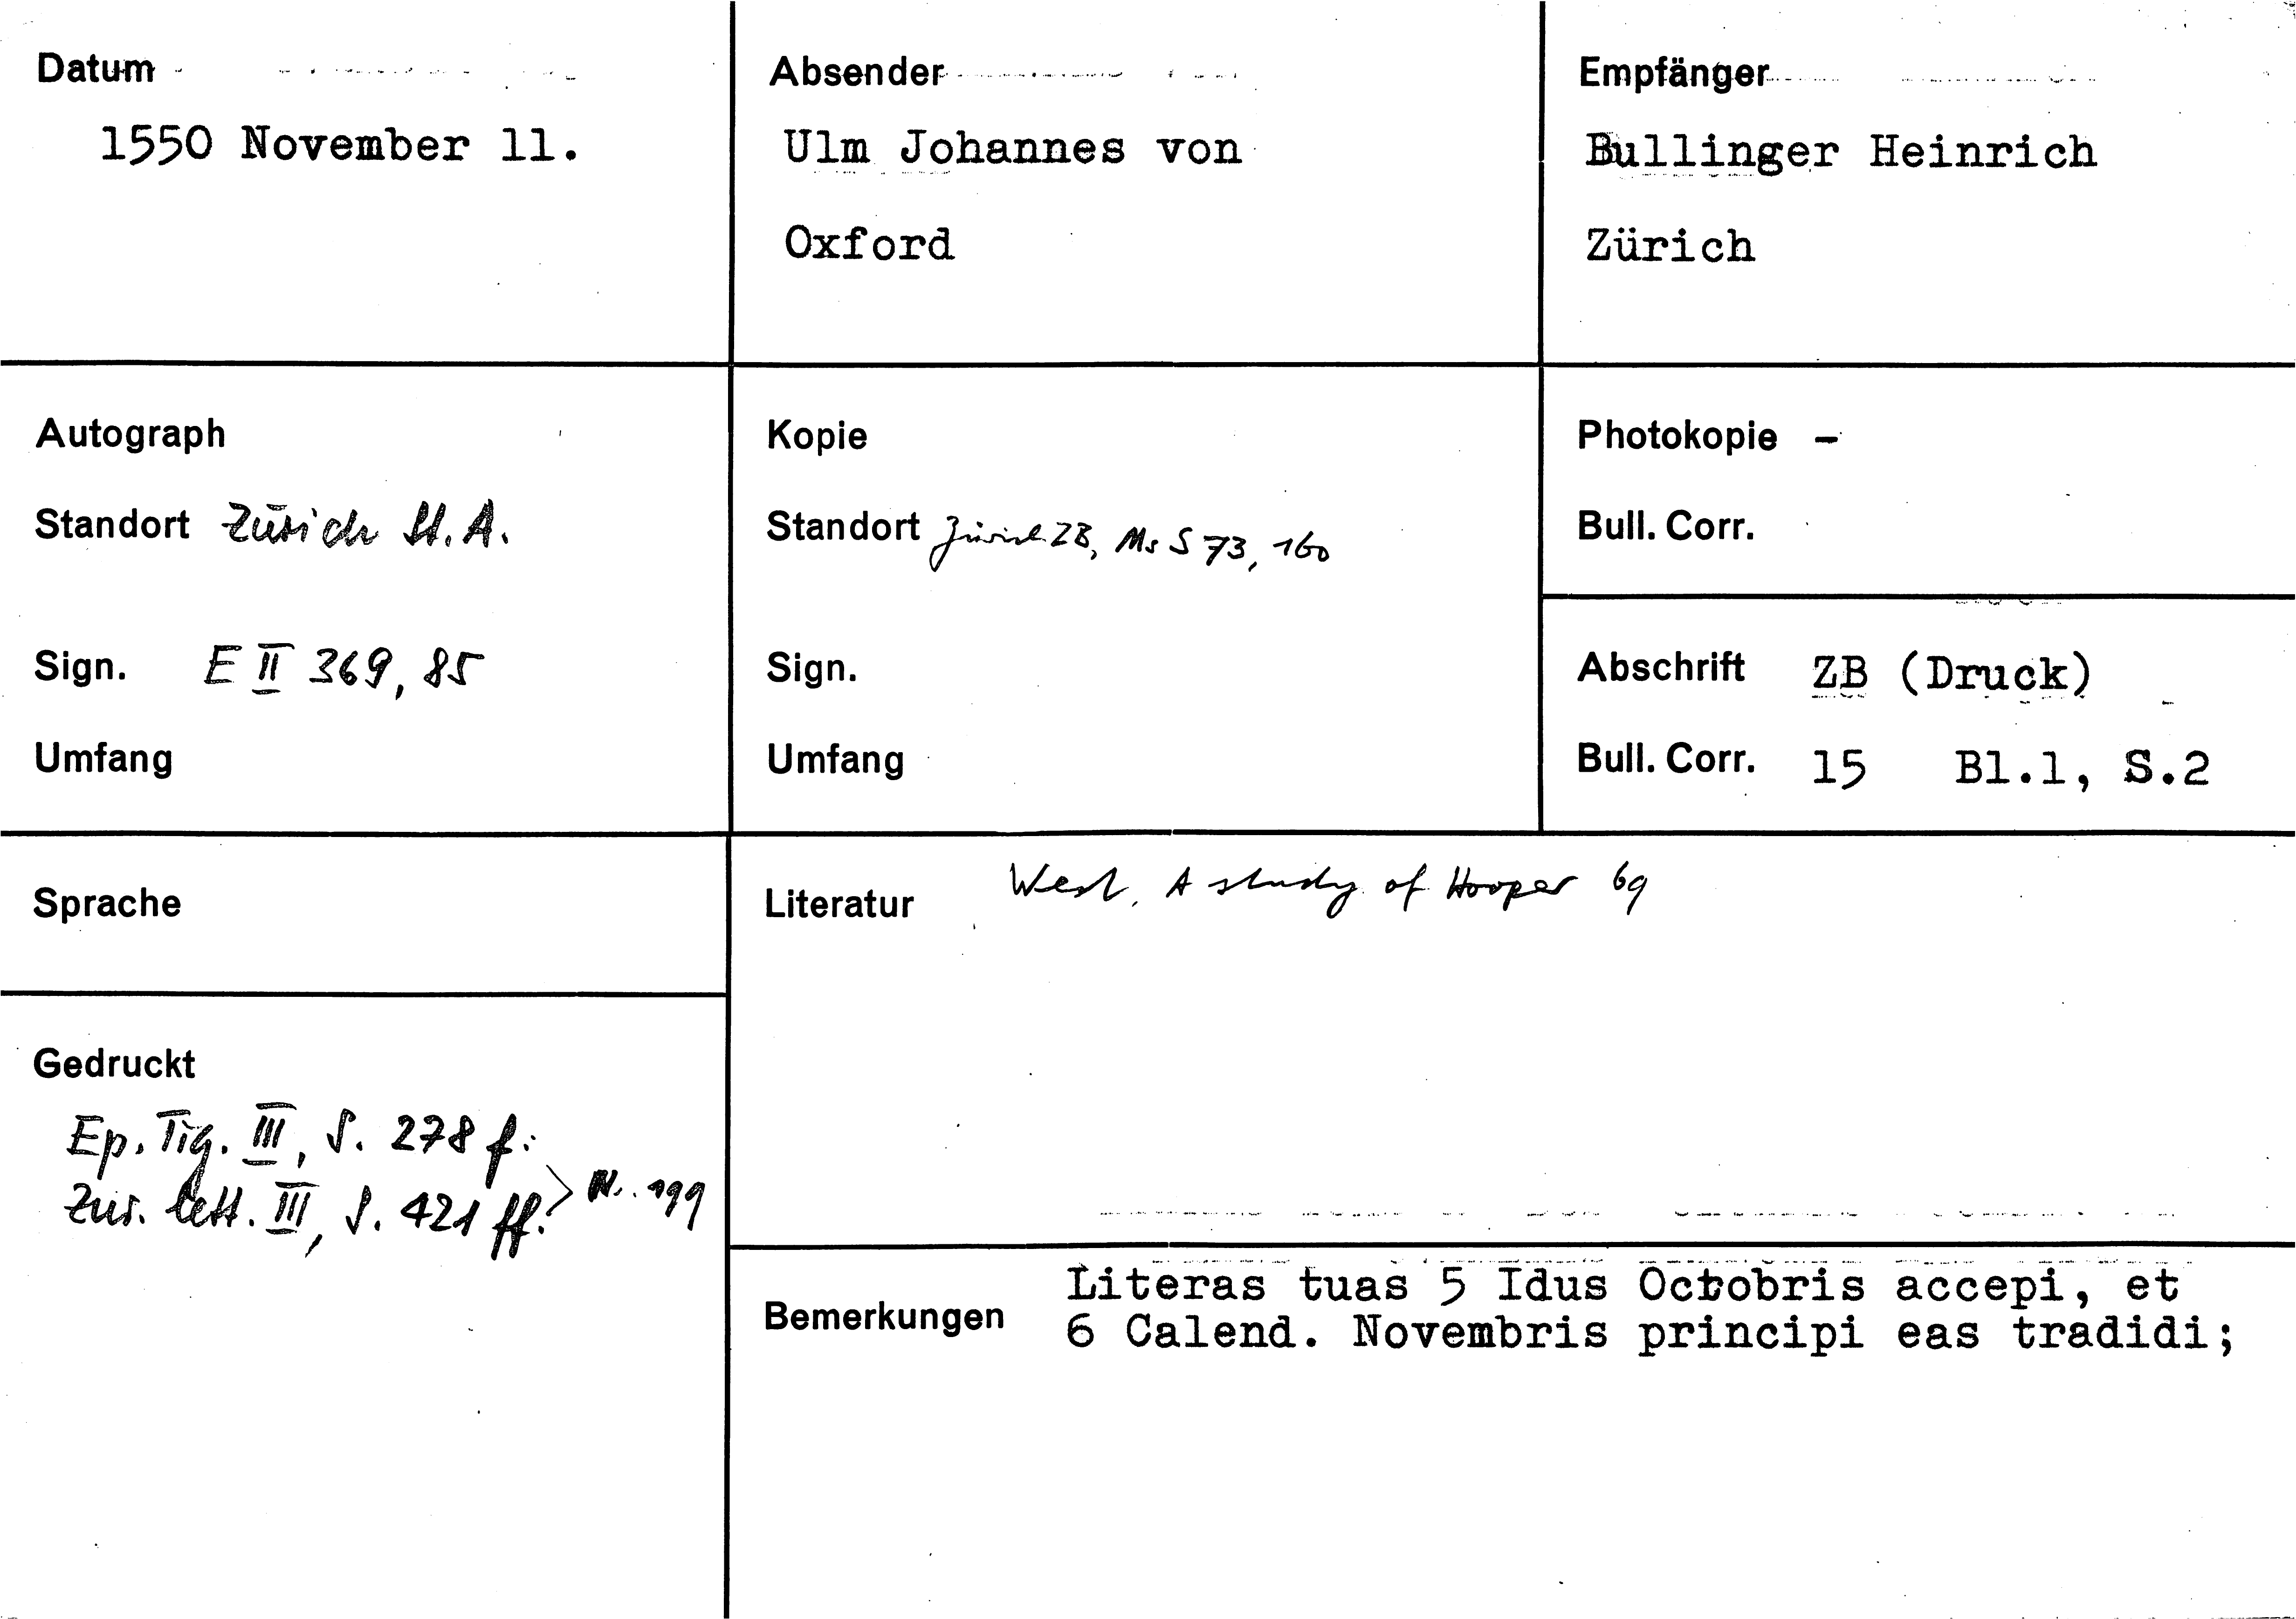 Datum
1550 November 11.
Absender
Ulm Johannes von
Oxford
Empfänger
Bullinger Heinrich
Zürich
Autograph
Standort Zürich St. A.
Sign. E II 369, 85
Umfang
Kopie
Standort Zürich ZB, Ms S 73, 160
Sign.
Umfang
Photokopie -
Bull. Corr.
Abschrift ZB (Druck)
Bull. Corr. 15 Bl.1, S.2
Sprache
Gedruckt
Ep. Tig. III, S. 278 f.
Zur. lett. III, S. 421 ff. > Nr. 199
Literatur West, A study of Hooper 69
Bemerkungen
Literas tuas 5 Idus Octobris accepi, et
6 Calend. Novembris principi eas tradidi;